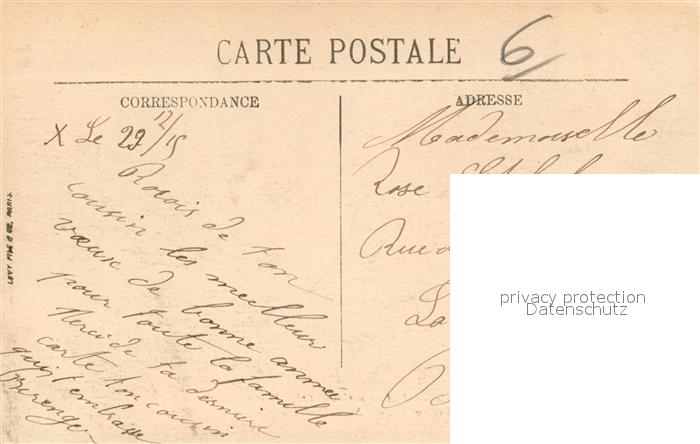 CARTE POSTALE
6
CORRESPONDANCE
X Le 29 12/15
Recois de ton
cousin les meilleur
vœux de bonne année
pour toute la famille
Merci de ta derniere
carte ton cousin
qui t'embrasse
Berenger
LEVY FILS & CIE, PARIS
ADRESSE
Mademoiselle
Rose
Rue
La
privacy protection
Datenschutz